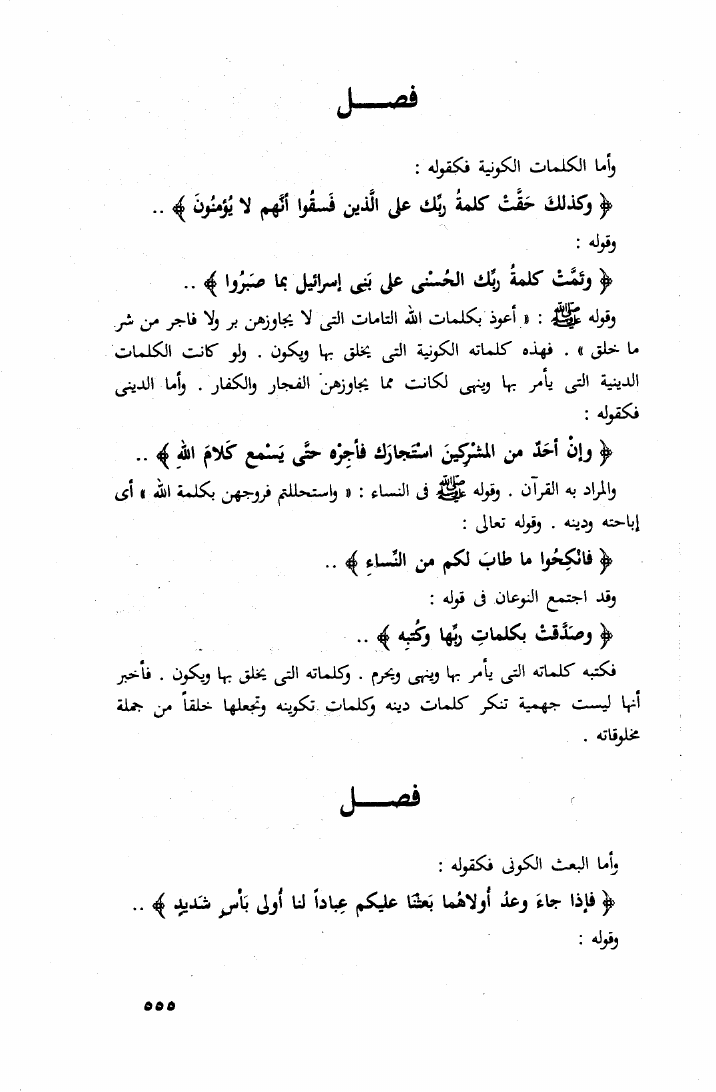 فصــــل
وأما الكلمات الكونية فكقوله :
﴿ وكذلكَ حَقَّتْ كلمةُ ربِّك على الَّذين فَسقُوا أنَّهم لا يُؤمنُونَ ﴾ ..
وقوله :
﴿ وتَمَّتْ كلمةُ ربِّك الحُسْنى على بَنِى إسرائيل بما صبَرُوا ﴾ ..
وقوله ﷺ : « أعوذ بكلمات الله التامات التى لا يجاوزهن بر ولا فاجر من شر
ما خلق » . فهذه كلماته الكونية التى يخلق بها ويكون . ولو كانت الكلمات
الدينية التى يأمر بها وينهى لكانت مما يجاوزهن الفجار والكفار . وأما الدينى
فكقوله :
﴿ وإنْ أحَدٌ من المشْرِكِينَ اسْتَجارَك فأجِرْه حتَّى يَسْمع كَلامَ اللهِ ﴾ ..
والمراد به القرآن . وقوله ﷺ فى النساء : « واستحللتم فروجهن بكلمة الله » أى
إباحته ودينه . وقوله تعالى :
﴿ فانْكِحُوا ما طابَ لكم من النِّساءِ ﴾ ..
وقد اجتمع النوعان فى قوله :
﴿ وصَدَّقتْ بكلماتِ ربِّها وكُتبِه ﴾ ..
فكتبه كلماته التى يأمر بها وينهى ويحرم . وكلماته التى يخلق بها ويكون . فأخبر
أنها ليست جهمية تنكر كلمات دينه وكلمات تكوينه وتجعلها خلقاً من جملة
مخلوقاته .
فصــــل
وأما البعث الكونى فكقوله :
﴿ فإذا جاءَ وعدُ أُولاهُما بَعثْنَا عليكم عِباداً لنا أُولى بَأسٍ شَديدٍ ﴾ ..
وقوله :
٥٥٥